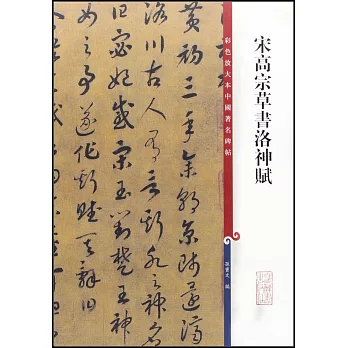 宋高宗草書洛神賦
彩色放大本中國著名碑帖
孫寶文 編
黄初三年余朝京師還濟
洛川古人有言斯水之神名
曰宓妃感宋玉對楚王神
之事遂作斯賦其辭曰